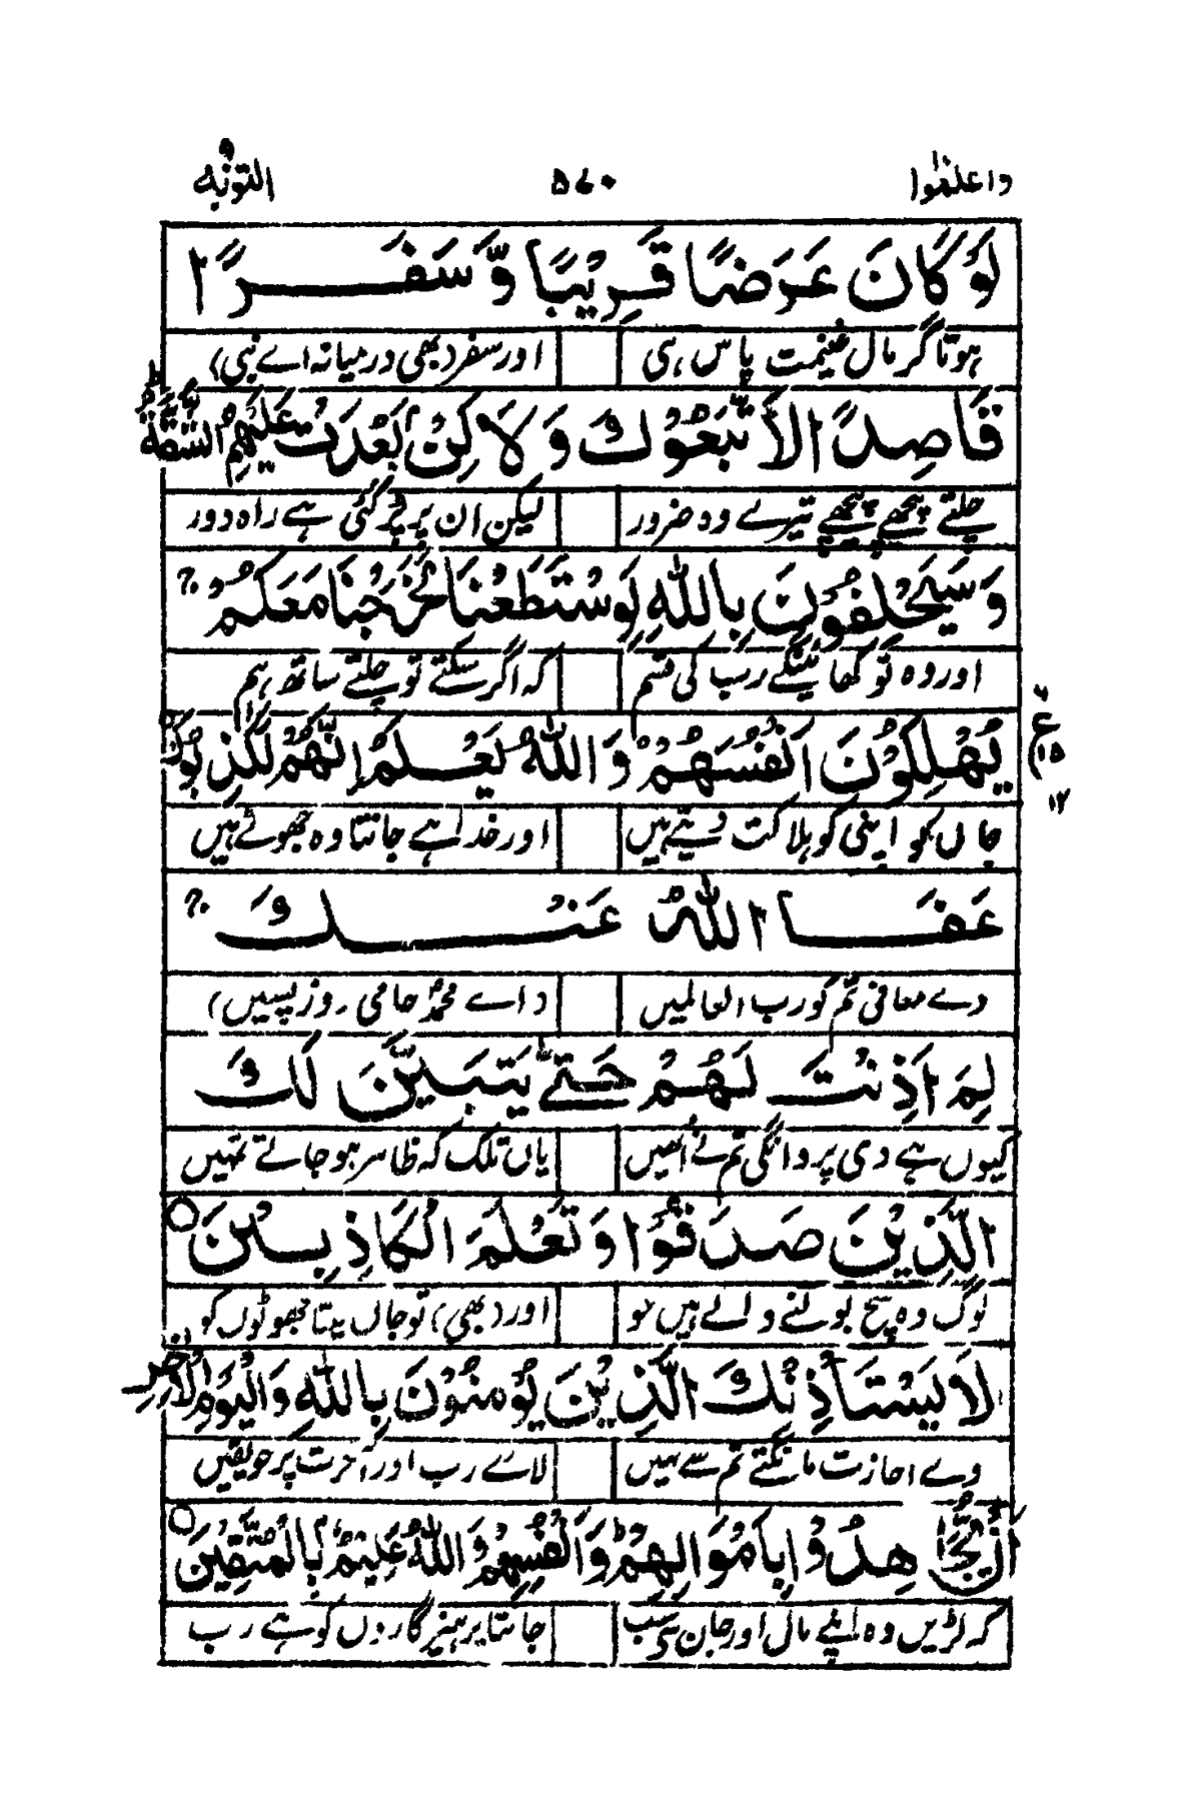 واعلموا ۵۷۰ التوبه ۹
لَوْ كَانَ عَرَضًا قَرِيْبًا وَّ سَفَرًا
ہوتا گر مال غنیمت پاس ہی اور سفر (بھی درمیانہ اے نبی)
قَاصِدًا الَّاتَّبَعُوْكَ وَ لَاكِنْۢ بَعُدَتْ عَلَيْهِمُ الشُّقَّةُ ؕ
چلتے پیچھے پیچھے تیرے وہ ضرور لیکن ان پر پڑ گئی ہے راہ دور
وَ سَيَحْلِفُوْنَ بِاللّٰهِ لَوِ سْتَطَعْنَا لَخَرَجْنَا مَعَكُمْ ۚ
اور وہ تو کھائینگے رب کی قسم کہ اگر سکتے تو چلتے ساتھ ہم
يُهْلِكُوْنَ اَنْفُسَهُمْ ۚ وَ اللّٰهُ يَعْلَمُ اِنَّهُمْ لَكٰذِبُوْنَ
ع ۱۵ ۱۲
جاں کو اپنی کو ہلاکت دیتے ہیں اور خدا ہے جانتا وہ جھوٹے ہیں
عَفَا اللّٰهُ عَنْكَ ۚ
دے معافی تم کو رب العالمیں (اے محمدؐ حامی روز پسیں)
لِمَ اَذِنْتَ لَهُمْ حَتّٰى يَتَبَيَّنَ لَكَ
کیوں ہے دی پروانگی تم نے اُنھیں یاں تلک کہ ظاہر ہو جاتے تمہیں
الَّذِيْنَ صَدَقُوْا وَ تَعْلَمَ الْكَاذِبِيْنَ ○
لوگ وہ سچ بولنے والے ہیں جو اور (بھی) تو جاں لیتا جھوٹوں کو
لَا يَسْتَاْذِنُكَ الَّذِيْنَ يُؤْمِنُوْنَ بِاللّٰهِ وَ الْيَوْمِ الْاٰخِرِ
وے اجازت مانگتے تم سے نہیں لائے رب اور آخرت پر جو یقیں
اَنْ يُّجَاهِدُوْا بِاَمْوَالِهِمْ وَ اَنْفُسِهِمْ ؕ وَ اللّٰهُ عَلِيْمٌۢ بِالْمُتَّقِيْنَ ○
کہ لڑیں وہ اپنے مال اور جان سے سب جانتا پرہیزگاروں کو ہے رب